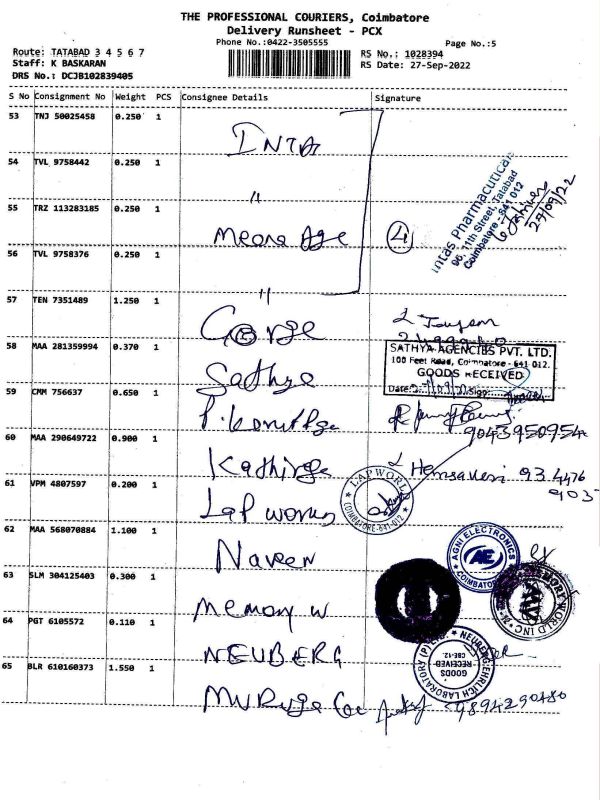 THE PROFESSIONAL COURIERS, Coimbatore
Delivery Runsheet - PCX
Phone No.:0422-3505555
Page No.:5
Route: TATABAD 3 4 5 6 7
RS No.: 1028394
Staff: K BASKARAN
RS Date: 27-Sep-2022
DRS No.: DCJB102839405
S No Consignment No Weight PCS Consignee Details Signature
53 TNJ 50025458 0.250 1
INTA
54 TVL 9758442 0.250 1
"
Intas Pharmaceutical
96, 11th Street, Tatabad
Coimbatore - 641 012
27/09/22
55 TRZ 113283185 0.250 1
4
56 TVL 9758376 0.250 1
"
57 TEN 7351489 1.250 1
58 MAA 281359994 0.370 1
SATHYA AGENCIES PVT. LTD.
100 Feet Road, Coimbatore - 641 012.
GOODS RECEIVED
Date: Sign:
Sathya
59 CMM 756637 0.650 1
9043950954
60 MAA 290649722 0.900 1
61 VPM 4807597 0.200 1
LAP WORLD
COIMBATORE-641 012
Lap works
62 MAA 568070884 1.100 1
Naveen
AGNI ELECTRONICS
AE
COIMBATORE
63 SLM 304125403 0.300 1
Memory w
MEMORY WORLD INC
64 PGT 6105572 0.110 1
NEUBERG
NEUBERG EHRLICH LABORATORY (P) LTD
GOODS
RECEIVED
CBE-12.
65 BLR 610160373 1.550 1
9894290480